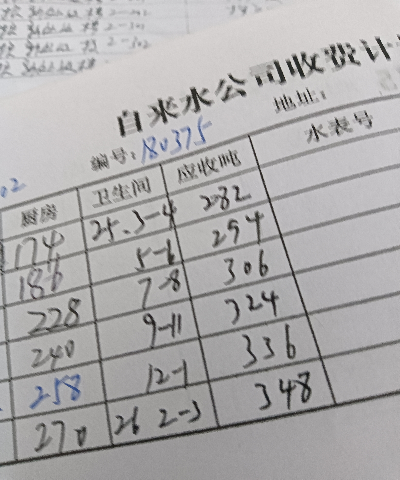 自来水公司收费计
编号: 180375 地址:
厨房 卫生间 应收吨 水表号
174 25.3-4 282
186 5-6 294
228 7-8 306
240 9-11 324
258 12-1 336
270 26 2-3 348